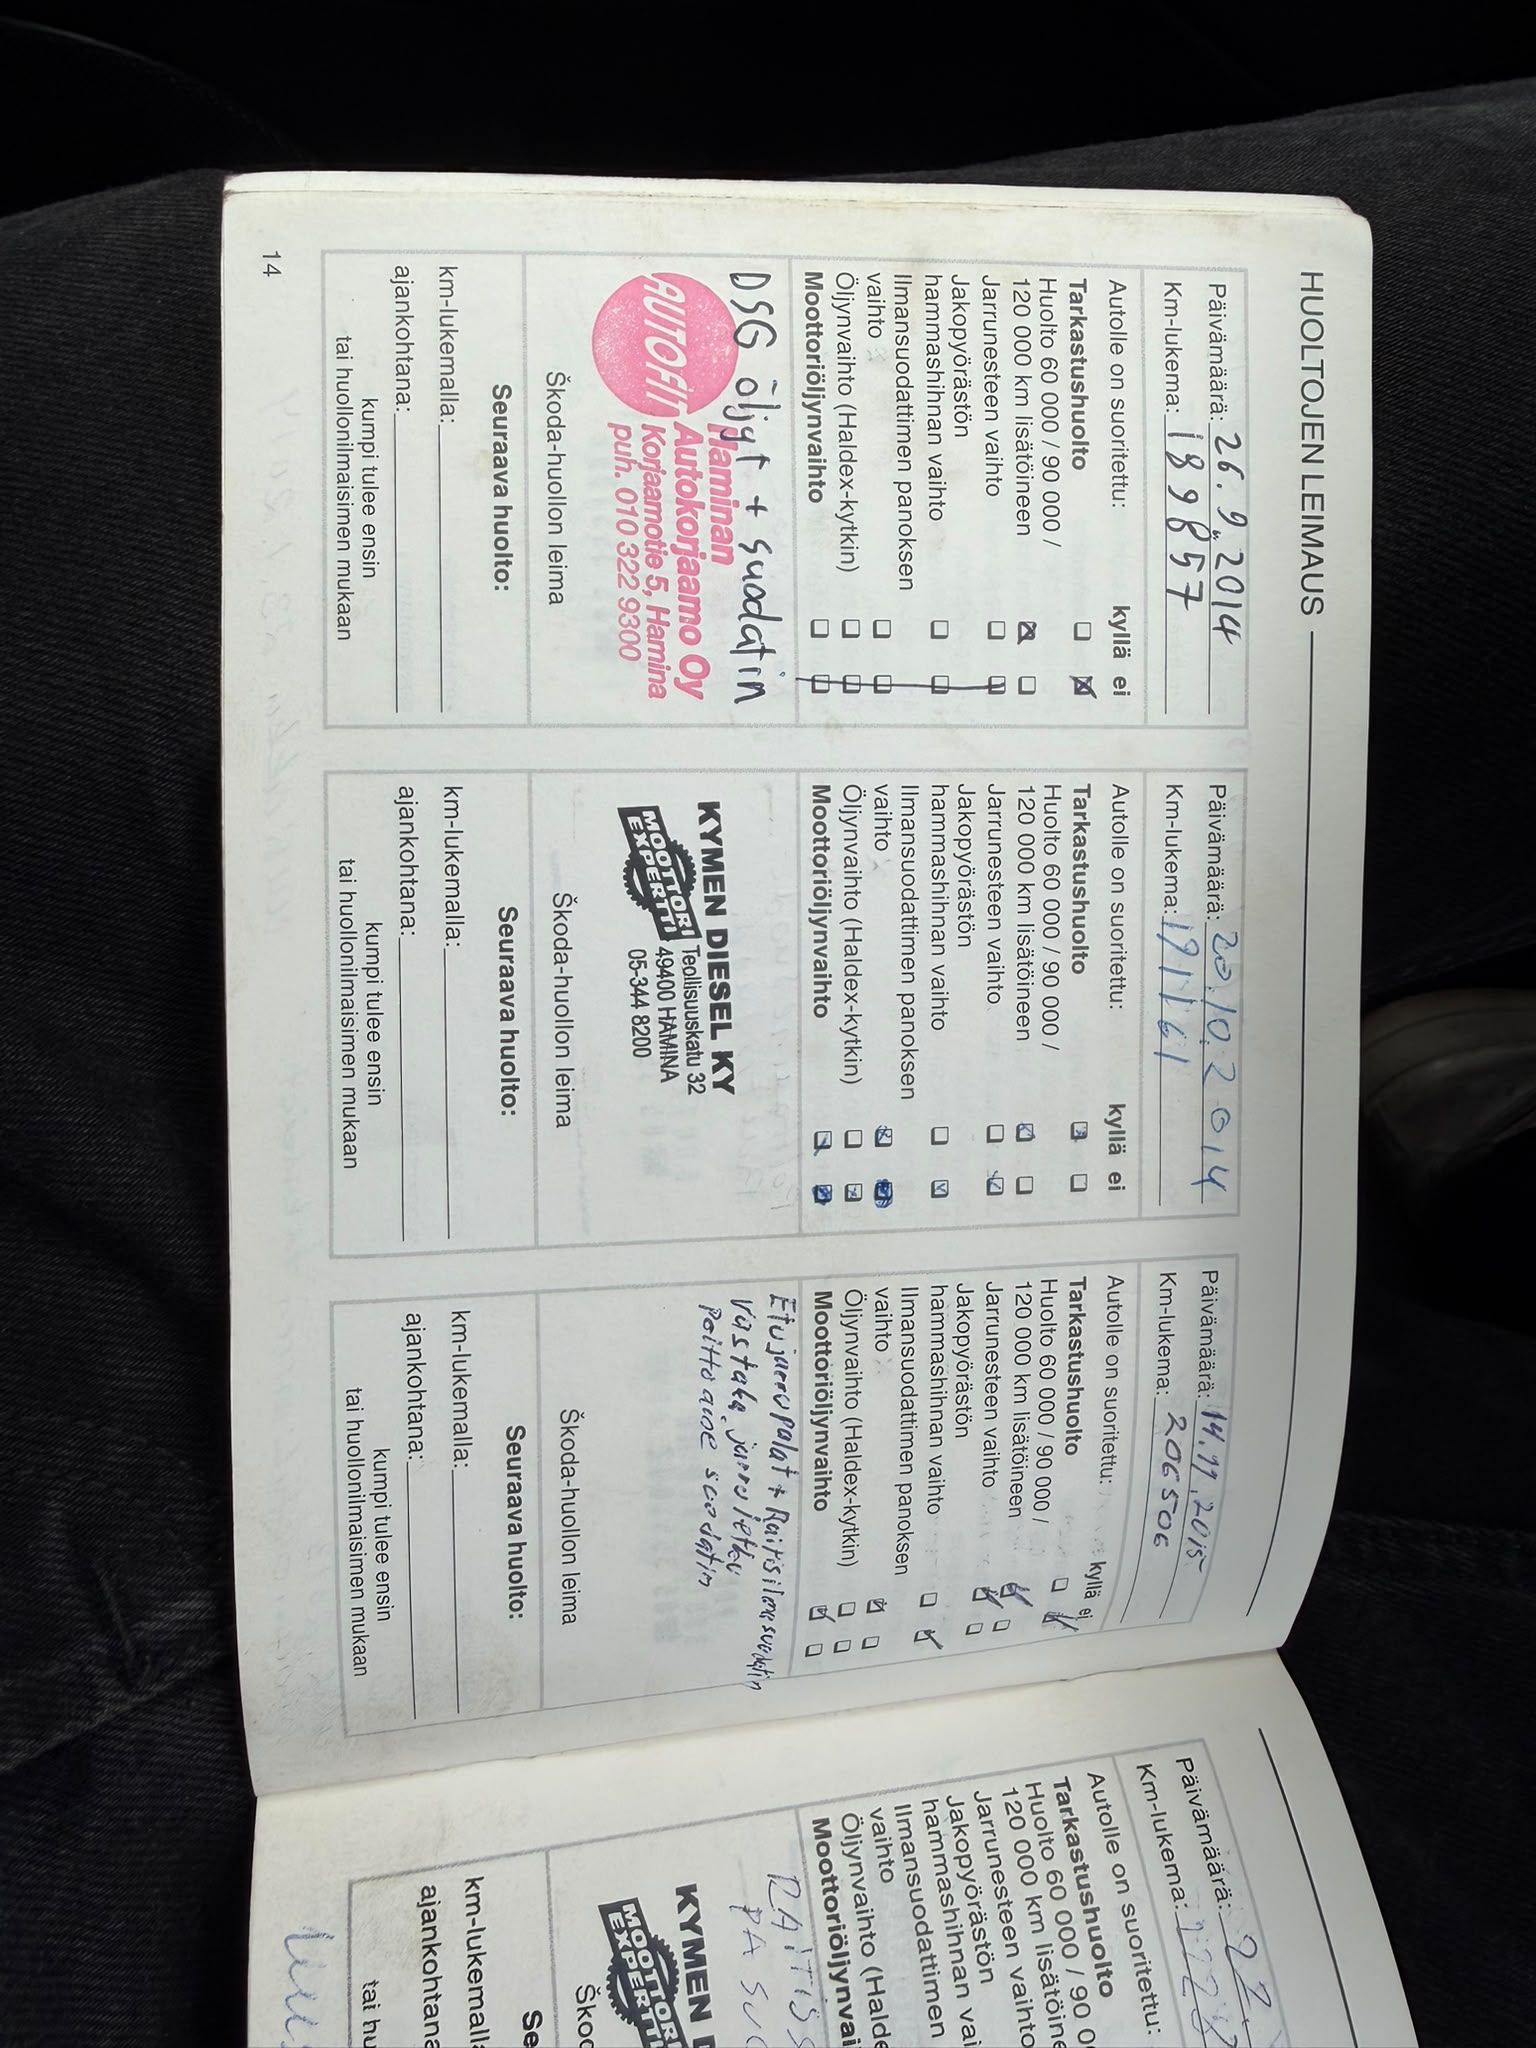 HUOLTOJEN LEIMAUS
Päivämäärä: 26.9.2014
Km-lukema: 189857
Autolle on suoritettu:
kyllä ei
Tarkastushuolto
Huolto 60 000 / 90 000 /
120 000 km lisätöineen
Jarrunesteen vaihto
Jakopyörästön
hammashihnan vaihto
Ilmansuodattimen panoksen
vaihto
Öljynvaihto (Haldex-kytkin)
Moottoriöljynvaihto
DSG öljyt + suodatin
AUTOFIT
Haminan
Autokorjaamo Oy
Korjaamotie 5, Hamina
puh. 010 322 9300
Škoda-huollon leima
Seuraava huolto:
km-lukemalla:
ajankohtana:
kumpi tulee ensin
tai huollonilmaisimen mukaan
14
Päivämäärä: 20.10.2014
Km-lukema: 191161
Autolle on suoritettu:
kyllä ei
Tarkastushuolto
Huolto 60 000 / 90 000 /
120 000 km lisätöineen
Jarrunesteen vaihto
Jakopyörästön
hammashihnan vaihto
Ilmansuodattimen panoksen
vaihto
Öljynvaihto (Haldex-kytkin)
Moottoriöljynvaihto
KYMEN DIESEL KY
MOOTTORI
EXPERTTI
Teollisuuskatu 32
49400 HAMINA
05-344 8200
Škoda-huollon leima
Seuraava huolto:
km-lukemalla:
ajankohtana:
kumpi tulee ensin
tai huollonilmaisimen mukaan
Päivämäärä: 14.11.2015
Km-lukema: 206506
Autolle on suoritettu:
kyllä ei
Tarkastushuolto
Huolto 60 000 / 90 000 /
120 000 km lisätöineen
Jarrunesteen vaihto
Jakopyörästön
hammashihnan vaihto
Ilmansuodattimen panoksen
vaihto
Öljynvaihto (Haldex-kytkin)
Moottoriöljynvaihto
Etujarrupalat + Raitisilmasuodatin
Vastaka jarruletku
Polttoaine suodatin
Škoda-huollon leima
Seuraava huolto:
km-lukemalla:
ajankohtana:
kumpi tulee ensin
tai huollonilmaisimen mukaan
Päivämäärä: 22
Km-lukema:
Autolle on suoritettu:
Tarkastushuolto
Huolto 60 000 / 90 0
120 000 km lisätöine
Jarrunesteen vaihto
Jakopyörästön
hammashihnan vai
Ilmansuodattimen
vaihto
Öljynvaihto (Halde
Moottoriöljynvai
RAITIS
KYMEN D
MOOTTORI
EXPERTTI
Ško
Se
km-lukemalla
ajankohtana
tai hu